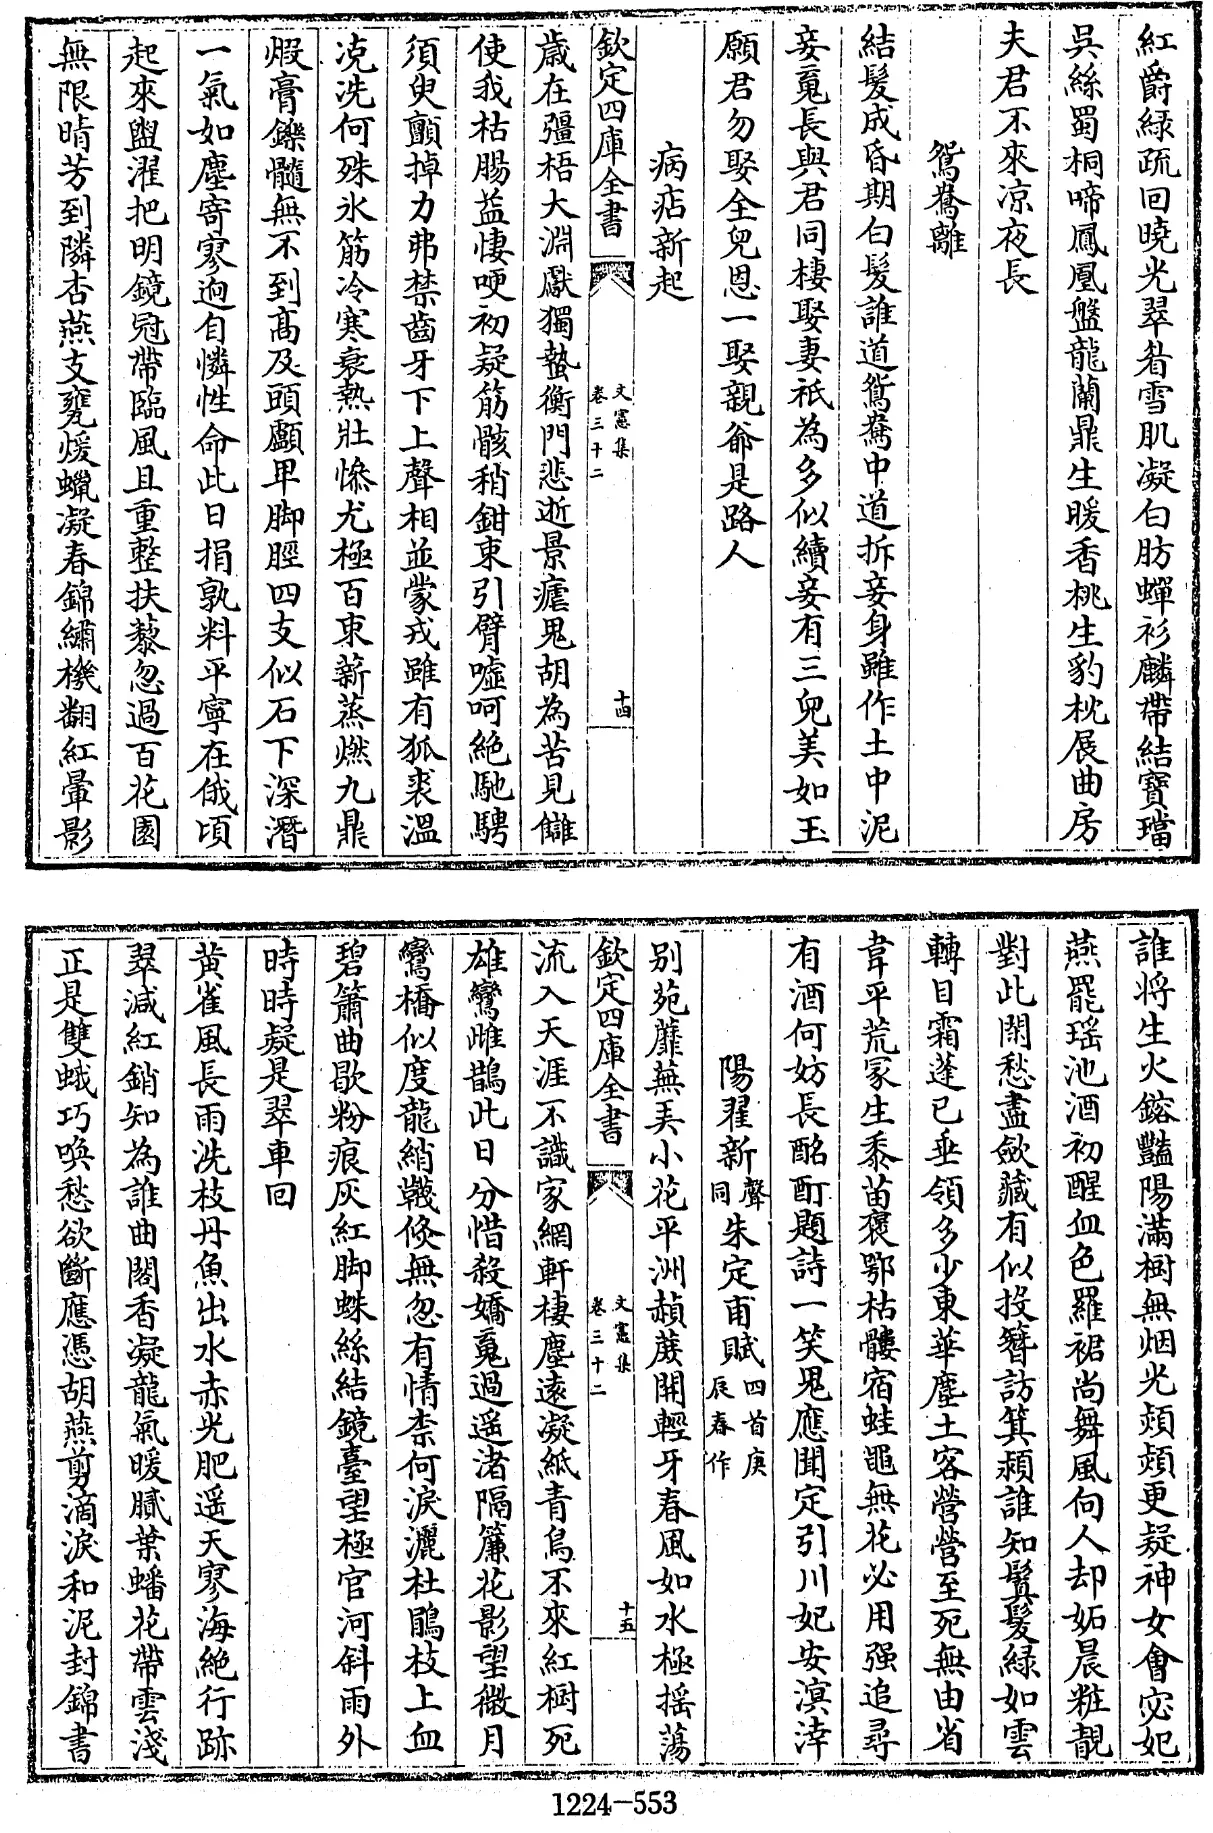 紅爵緑疏回曉光翠眉雪肌凝白肪蟬衫麟帶結寶璫
吳絲蜀桐啼鳳凰盤龍蘭鼎生暖香桃生豹枕展曲房
夫君不來凉夜長
鴛鴦離
結髮成昏期白髮誰道鴛鴦中道拆妾身雖作土中泥
妾䰟長與君同棲娶妻祇為多似續妾有三兒美如玉
願君勿娶全兒恩一娶親爺是路人
病痁新起
欽定四庫全書
文憲集
卷三十二
十四
歳在彊梧大淵獻獨蟄衡門悲逝景瘧鬼胡為苦見讎
使我枯腸益悽哽初疑筋骸稍鉗束引臂噓呵絶馳騁
須臾顫掉力弗禁齒牙下上聲相並蒙戎雖有狐裘溫
凂洗何殊氷筋冷寒衰熱壯慘尤極百束薪蒸燃九鼎
煆膏鑠髓無不到髙及頭顱卑脚脛四支似石下深潛
一氣如塵寄寥逈自憐性命此日捐孰料平寧在俄頃
起來盥濯把明鏡冠帶臨風且重整扶藜忽過百花園
無限晴芳到隣杏燕支甕煖蠟凝春錦繡機翻紅暈影
誰將生火鎔豔陽滿樹無烟光熲熲更疑神女會宓妃
燕罷瑶池酒初醒血色羅裙尚舞風向人却妬晨粧靚
對此閑愁盡斂藏有似投簪訪箕潁誰知鬒髮緑如雲
轉目霜蓬已垂領多少東華塵土客營營至死無由省
韋平荒冢生黍苗褒鄂枯髏宿蛙黽無花必用强追尋
有酒何妨長酩酊題詩一笑鬼應聞定引川妃安溟涬
陽翟新聲同朱定甫賦四首庚辰春作
别苑蘼蕪美小花平洲蘋蕨開輕牙春風如水極揺蕩
欽定四庫全書
文憲集
卷三十二
十五
流入天涯不識家網軒棲塵逺凝紙青鳥不來紅樹死
雄鸞雌鵲此日分惜殺嬌䰟過遥渚隔簾花影望㣲月
鸞橋似度龍綃韈倐無忽有情柰何淚灑杜鵑枝上血
碧簫曲歇粉痕灰紅脚蛛絲結鏡臺望極官河斜雨外
時時疑是翠車回
黄雀風長雨洗枝丹魚出水赤光肥遥天寥海絶行跡
翠減紅銷知為誰曲閣香凝龍氣暖膩葉蟠花帶雲淺
正是雙蛾巧喚愁欲斷應憑胡燕剪滴淚和泥封錦書
1224-553